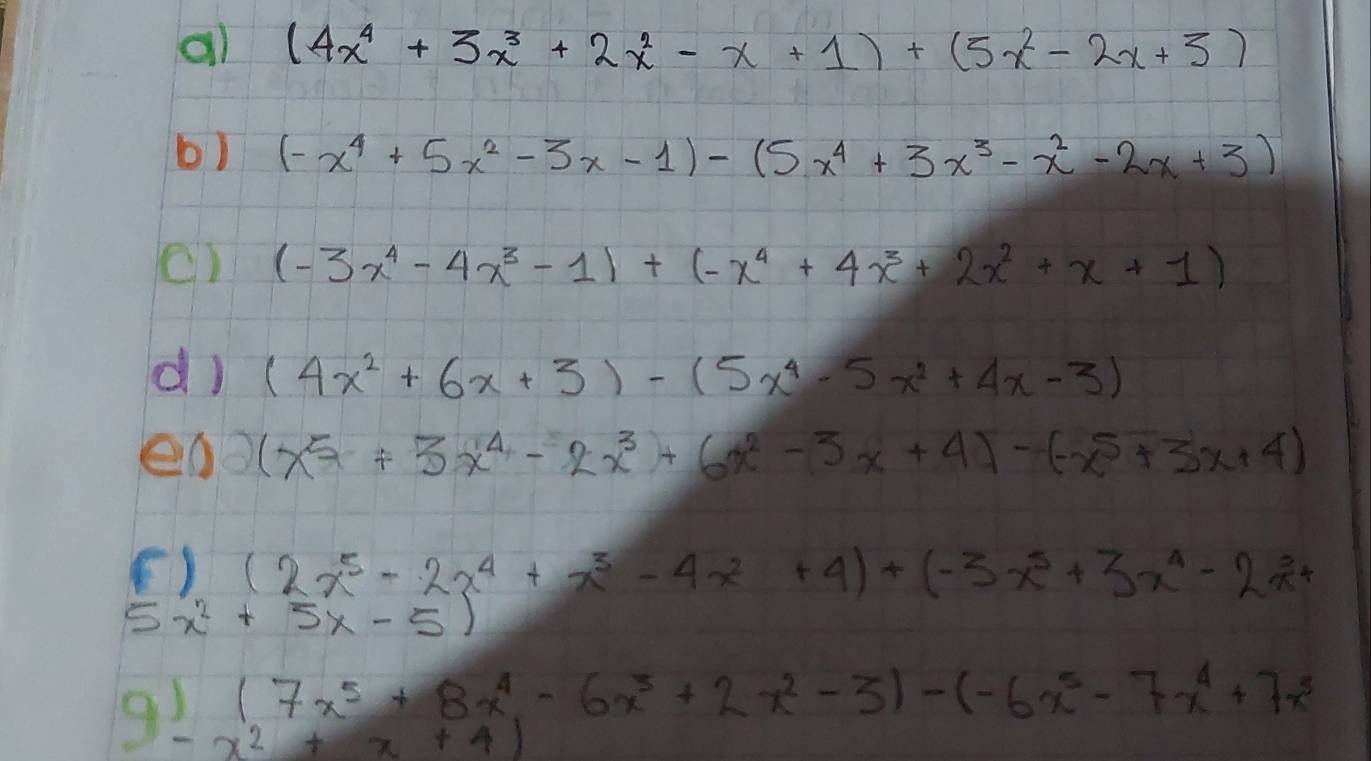 a) (4x⁴ + 3x³ + 2x² - x + 1) + (5x² - 2x + 3)
b) (-x⁴ + 5x² - 3x - 1) - (5x⁴ + 3x³ - x² - 2x + 3)
c) (-3x⁴ - 4x³ - 1) + (-x⁴ + 4x³ + 2x² + x + 1)
d) (4x² + 6x + 3) - (5x⁴ - 5x² + 4x - 3)
e) (x⁵ + 3x⁴ - 2x³ + 6x² - 3x + 4) - (-x⁵ + 3x + 4)
f) (2x⁵ - 2x⁴ + x³ - 4x² + 4) + (-3x⁵ + 3x⁴ - 2x³ +
5x² + 5x - 5)
g) (7x⁵ + 8x⁴ - 6x³ + 2x² - 3) - (-6x⁵ - 7x⁴ + 7x³
- x² + x + 4)